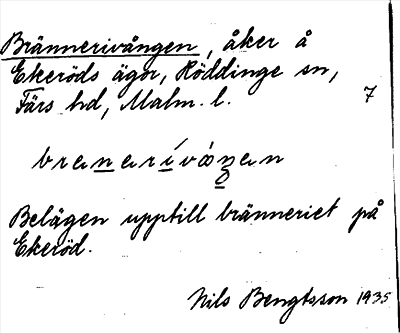 Brännerivången, åker å
Ekeröds ägor, Röddinge sn,
Färs hd, Malm. l. 7
Belägen upptill bränneriet på
Ekeröd.
Nils Bengtsson 1935